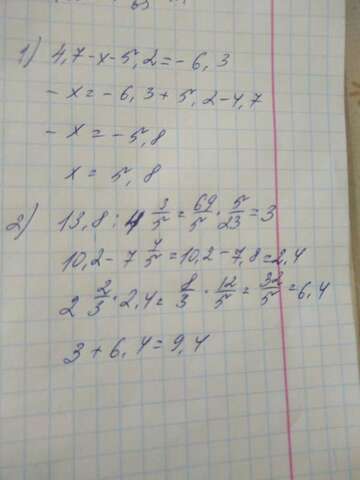 1) 4,7-x-5,2=-6,3
-x=-6,3+5,2-4,7
-x=-5,8
x=5,8
2) 13,8:4 3/5=69/5·5/23=3
10,2-7 4/5=10,2-7,8=2,4
2 2/3·2,4=8/3·12/5=32/5=6,4
3+6,4=9,4